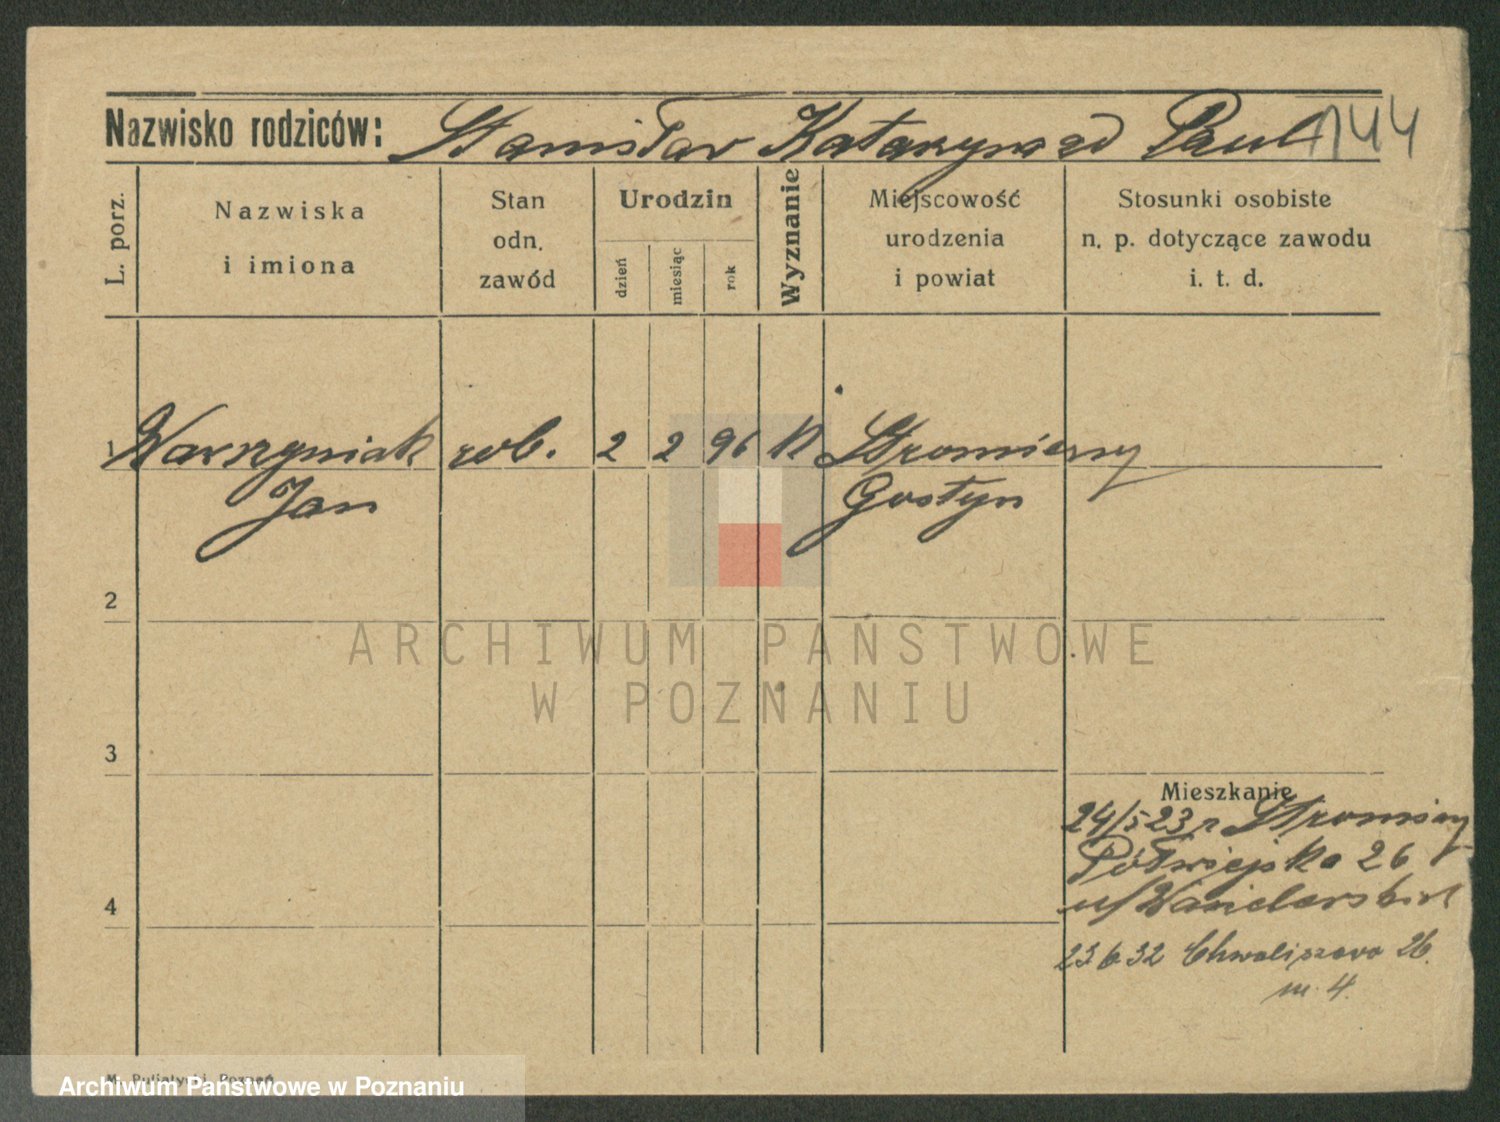 Nazwisko rodziców: Stanisław Katarzyna zd Paul 144
L. porz.
Nazwiska
i imiona
Stan
odn.
zawód
Urodzin
dzień
miesiąc
rok
Wyznanie
Miejscowość
urodzenia
i powiat
Stosunki osobiste
n. p. dotyczące zawodu
i. t. d.
1 Wawrzyniak rob. 2 2 96 K
Jan Gostyn
2
ARCHIWUM PAŃSTWOWE
W POZNANIU
3
Mieszkanie
24/5 23 r
Półwiejska 26
4
23 6 32 Chwaliszewo 26
m. 4.
Archiwum Państwowe w Poznaniu